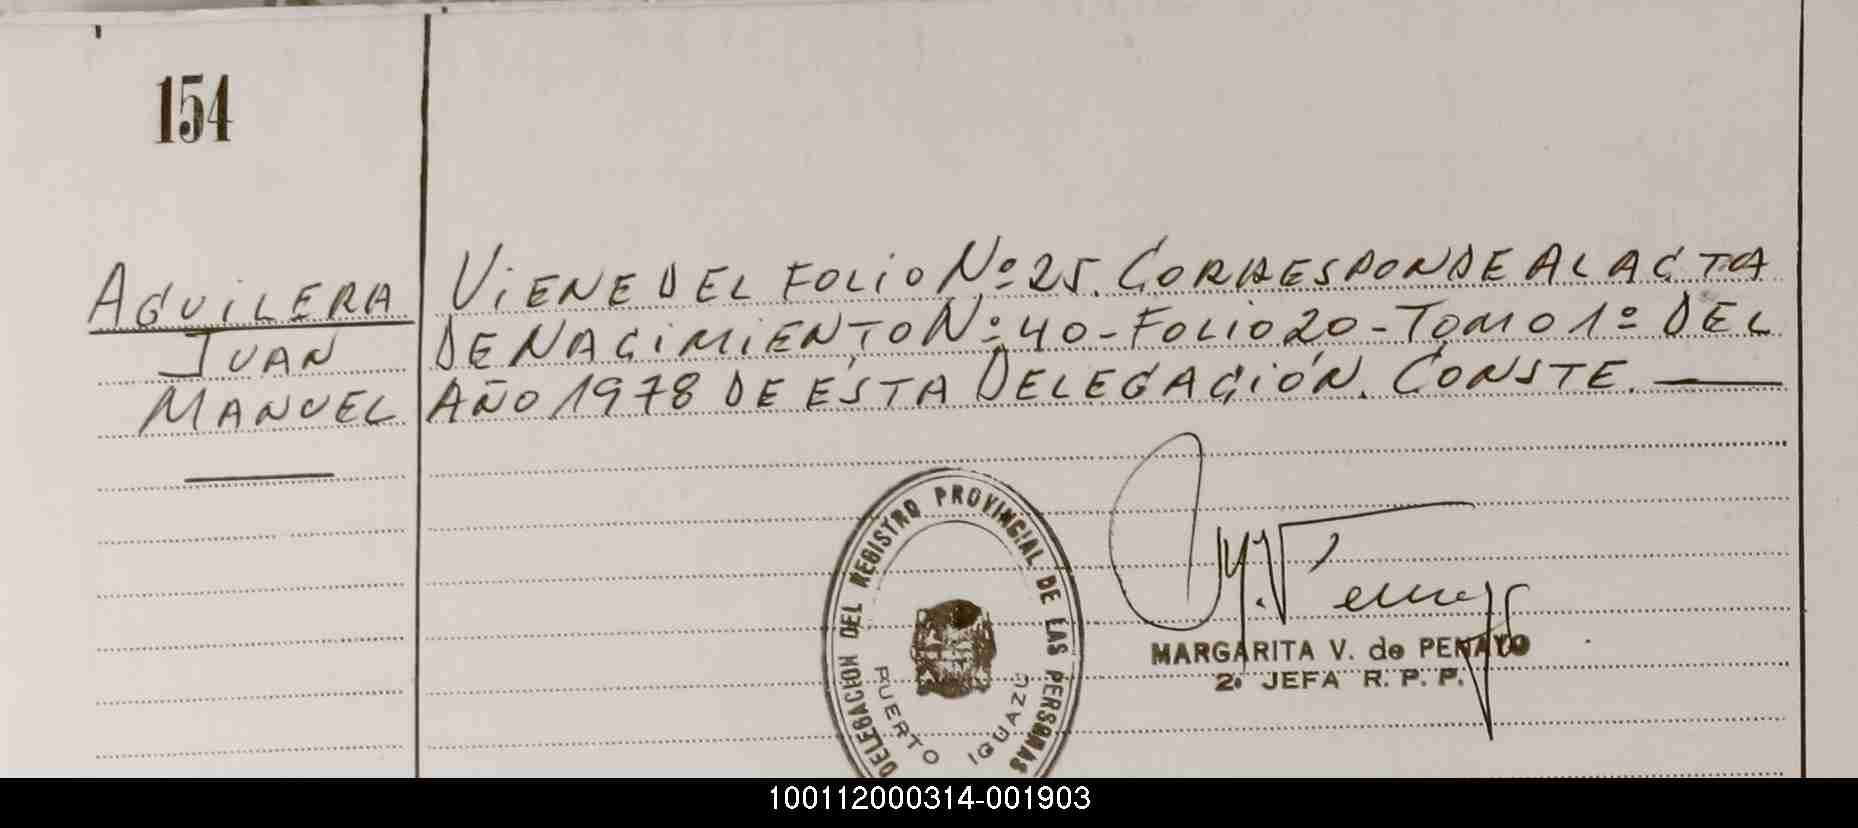 154
AGUILERA
JUAN
MANUEL
VIENE DEL FOLIO Nº 25. CORRESPONDE AL ACTA
DE NACIMIENTO Nº 40 - FOLIO 20 - TOMO 1º DEL
AÑO 1978 DE ÉSTA DELEGACIÓN. CONSTE.
DELEGACION DEL REGISTRO PROVINCIAL DE LAS PERSONAS
PUERTO IGUAZU
MARGARITA V. de PENAYO
2ª JEFA R. P. P.
100112000314-001903